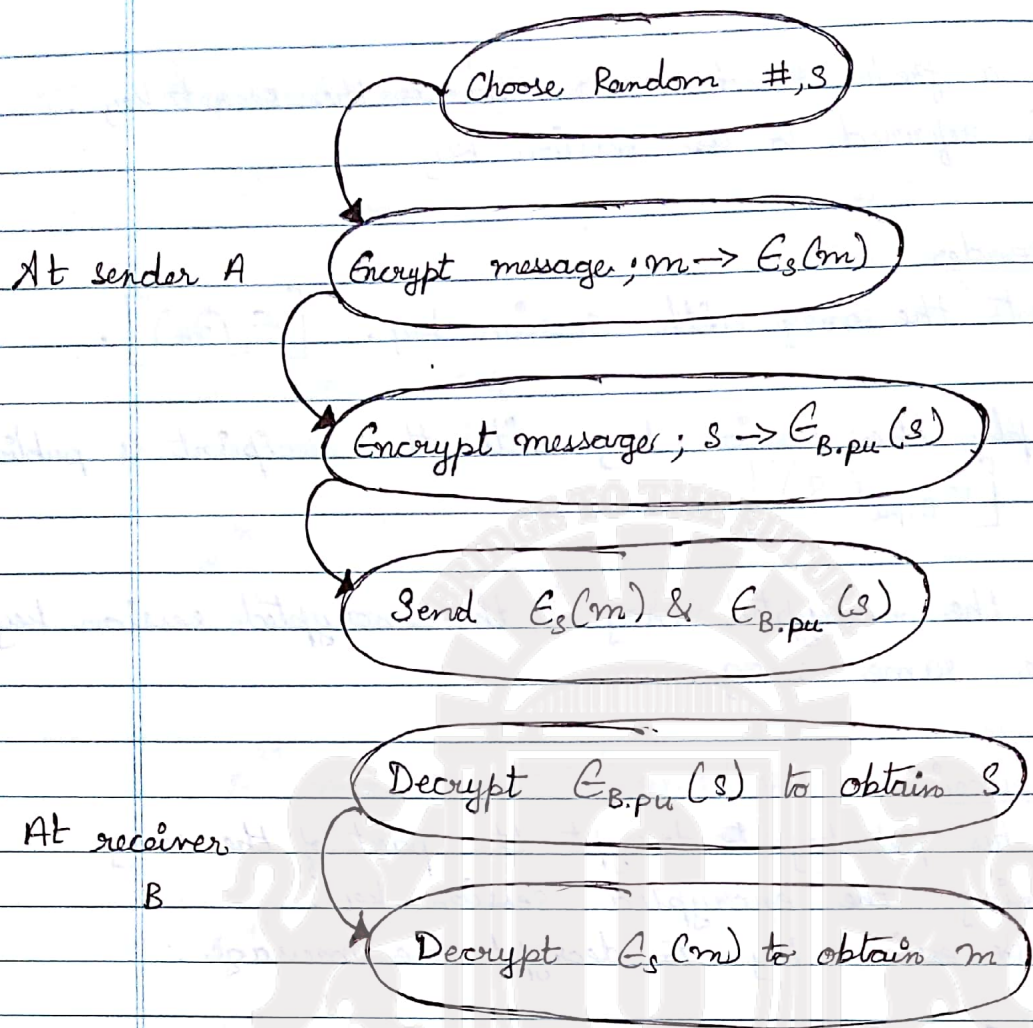 Choose Random #, s
At sender A
Encrypt message ; m → E_s(m)
Encrypt message ; s → E_B.pu (s)
Send E_s(m) & E_B.pu (s)
Decrypt E_B.pu (s) to obtain S
At receiver
B
Decrypt E_s (m) to obtain m
BRIDGE TO THE FUTURE